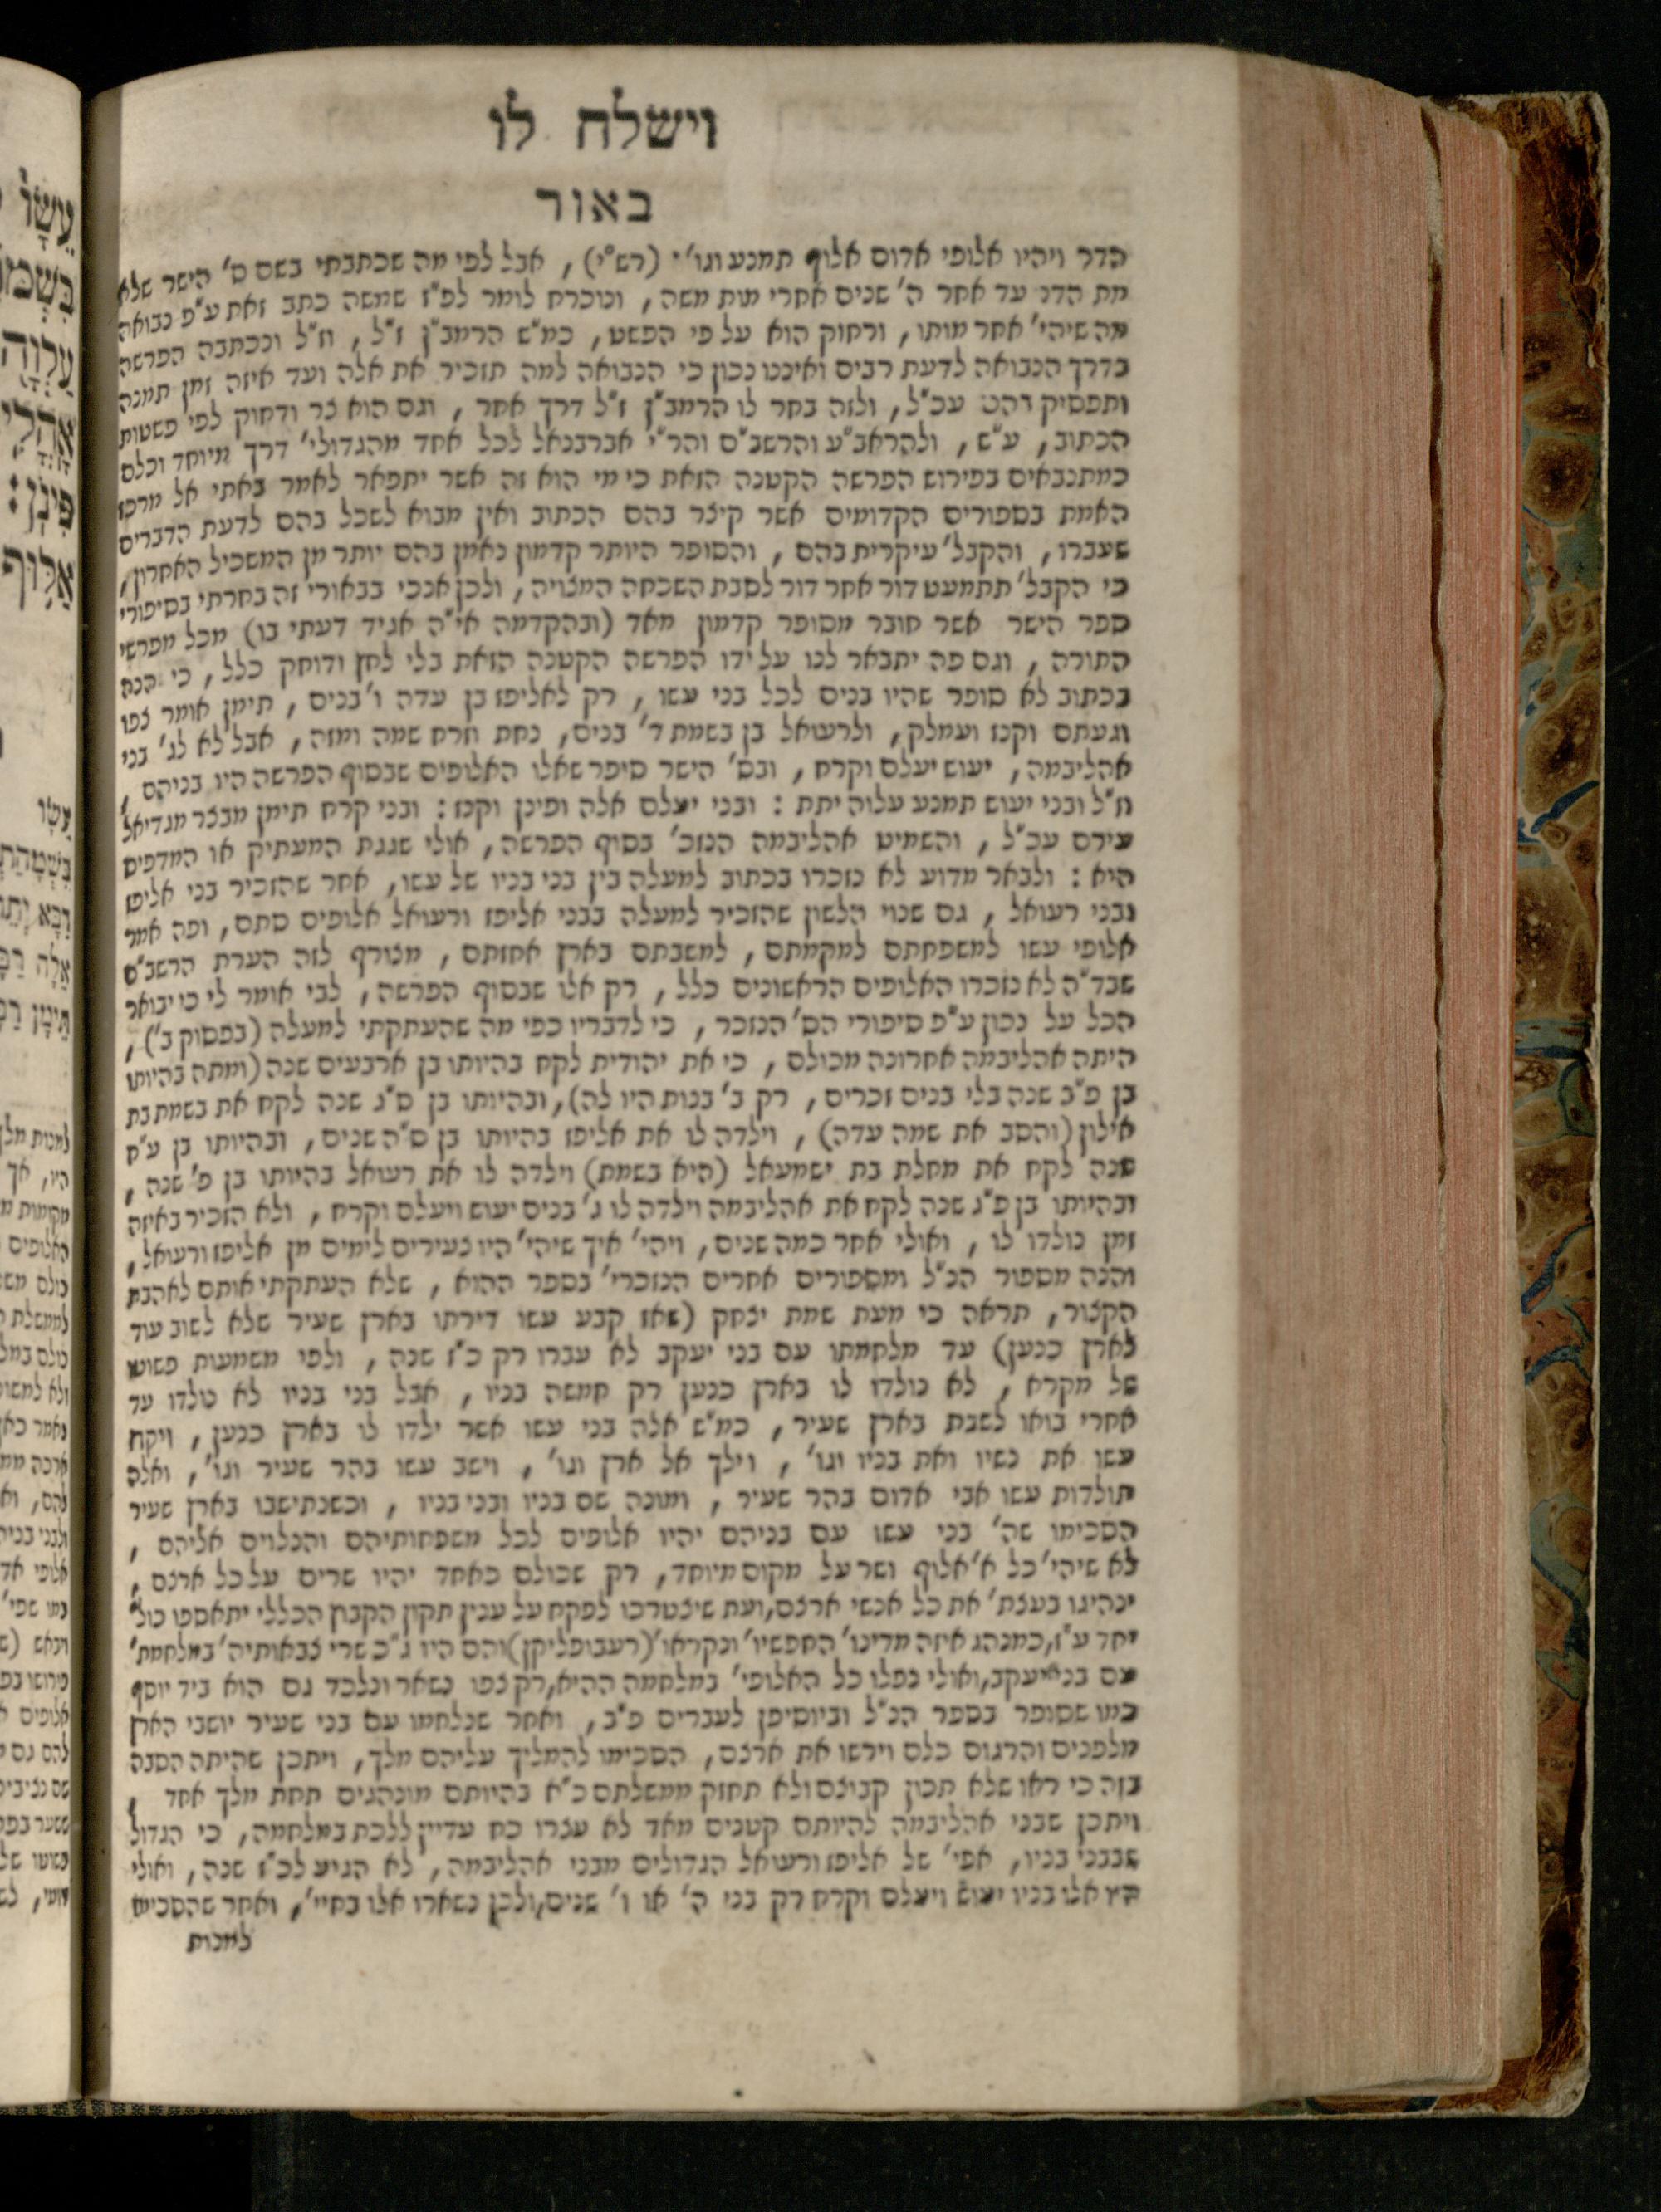 וישלח לו
באור
הדר ויהיו אלופי אדום אלוף תמנע וגו'׳ (רש"י), אבל לפי מה שכתבתי בשם ס' הישר שלא
מת הדר עד אחר ה' שנים אחרי מות משה, ונוכרח לומר לפ"ז שמשה כתב זאת ע"פ נבואה
מה שיהי' אחר מותו, ורחוק הוא על פי הפשט, כמ"ש הרמב"ן ז"ל, וז"ל ונכתבה הפרשה
בדרך הנבואה לדעת רבים ואיננו נכון כי הנבואה למה תזכיר את אלה ועד איזה זמן תמנה
ותפסיק עכ"ל, ולזה בחר לו הרמב"ן ז"ל דרך אחר, וגם הוא צר ודחוק לפי פשטות
הכתוב, ע"ש, ולהראב"ע והרשב"ם והר"י אברבנאל לכל אחד מהגדולי' דרך מיוחד וכלם
כמתנבאים בפירוש הפרשה הקטנה הזאת כי מי הוא זה אשר יתפאר לאמר באתי אל מרכז
האמת בספורים הקדומים אשר קיצר בהם הכתוב ואין מבוא לשכל בהם לדעת הדברים
שעברו, והקבל' עיקרית בהם, והסופר היותר קדמון נאמן בהם יותר מן המשכיל האחרון,
כי הקבל' תתמעט דור אחר דור לסבת השכחה המצויה, ולכן אנכי בבאורי זה בחרתי בסיפורי
ספר הישר אשר חובר מסופר קדמון מאד (ובהקדמה אי"ה אגיד דעתי בו) מכל מפרשי
התורה, וגם פה יתבאר לנו על ידו הפרשה הקטנה הזאת בלי לחץ ודוחק כלל, כי הנה
בכתוב לא סופר שהיו בנים לכל בני עשו, רק לאליפז בן עדה ו' בנים, תימן אומר צפו
וגעתם וקנז ועמלק, ולרעואל בן בשמת ד' בנים, נחת וזרח שמה ומזה, אבל לא לג' בני
אהליבמה, יעוש יעלם וקרח, ובס' הישר סיפר שאלו האלופים שבסוף הפרשה היו בניהם,
וז"ל ובני יעוש תמנע עלוה יתת : ובני יעלם אלה ופינן וקנז : ובני קרח תימן מבצר מגדיאל
עירם עכ"ל, והשמיט אהליבמה הנזכ' בסוף הפרשה, אולי שגגת המעתיק או המדפיס
היא : ולבאר מדוע לא נזכרו בכתוב למעלה בין בני בניו של עשו, אחר שהזכיר בני אליפז
ובני רעואל, גם שנוי הלשון שהזכיר למעלה בבני אליפז ורעואל אלופים סתם, ופה אמר
אלופי עשו למשפחתם למקמתם, למשבתם בארץ אחזתם, מצורף לזה הערת הרשב"ם
שבד"ה לא נזכרו האלופים הראשונים כלל, רק אלו שבסוף הפרשה, לבי אומר לי כי יבואר
הכל על נכון ע"פ סיפורי הס' הנזכר, כי לדבריו כפי מה שהעתקתי למעלה (בפסוק ב'),
היתה אהליבמה אחרונה מכולם, כי את יהודית לקח בהיותו בן ארבעים שנה (ומתה בהיותו
בן פ"ב שנה בלי בנים זכרים, רק ב' בנות היו לה), ובהיותו בן ס"ג שנה לקח את בשמת בת
אילון (והסב את שמה עדה), וילדה לו את אליפז בהיותו בן ס"ה שנים, ובהיותו בן ע"ח
שנה לקח את מחלת בת ישמעאל (היא בשמת) וילדה לו את רעואל בהיותו בן פ' שנה,
ובהיותו בן פ"ג שנה לקח את אהליבמה וילדה לו ג' בנים יעוש ויעלם וקרח, ולא הזכיר באיזה
זמן נולדו לו, ואולי אחר כמה שנים, ויהי' איך שיהי' היו צעירים לימים מן אליפז ורעואל,
והנה מספור הנ"ל ומספורים אחרים הנזכרי' בספר ההוא, שלא העתקתי אותם לאהבת
הקצור, תראה כי מעת שמת יצחק (שאז קבע עשו דירתו בארץ שעיר שלא לשוב עוד
לארץ כנען) עד מלחמתו עם בני יעקב לא עברו רק כ"ז שנה, ולפי משמעות פשוטו
של מקרא, לא נולדו לו בארץ כנען רק חמשה בניו, אבל בני בניו לא נולדו עד
אחרי בואו לשבת בארץ שעיר, כמ"ש אלה בני עשו אשר ילדו לו בארץ כנען, ויקח
עשו את נשיו ואת בניו וגו', וילך אל ארץ וגו', וישב עשו בהר שעיר וגו', ואלה
תולדות עשו אבי אדום בהר שעיר, ומונה שם בניו ובני בניו, וכשנתישבו בארץ שעיר
הסכימו שה' בני עשו עם בניהם יהיו אלופים לכל משפחותיהם והנלוים אליהם,
לא שיהי' כל א' אלוף ושר על מקום מיוחד, רק שכולם כאחד יהיו שרים על כל ארצם,
ינהיגו בעצת' את כל אנשי ארצם, ועת שיצטרכו לפקח על ענין תקון הקבוץ הכללי יתאספו כול'
יחד ע"ז, כמנהג איזה מדינו' החפשיו' ונקראו' (רעפובליקן) והם היו ג"כ שרי צבאותיה' במלחמת'
עם בני יעקב, ואולי נפלו כל האלופי' במלחמה ההיא, רק צפו נשאר ונלכד גם הוא ביד יוסף
כמו שסופר בספר הנ"ל וביוסיפון לעברים פ"ב, ואחר שנלחמו עם בני שעיר יושבי הארץ
מלפנים והרגום כלם וירשו את ארצם, הסכימו להמליך עליהם מלך, ויתכן שהיתה הסבה
בזה כי ראו שלא תכון קבוצם ולא תחזק ממשלתם כ"א בהיותם מונהגים תחת מלך אחד,
ויתכן שבני אהליבמה להיותם קטנים מאד לא עצרו כח עדיין ללכת במלחמה, כי הגדול
שבבני בניו, אפי' של אליפז ורעואל הגדולים מבני אהליבמה, לא הגיע לכ"ז שנה, ואולי
אלו בניו יעוש ויעלם וקרח רק בני ה' או ו' שנים, ולכן נשארו אלו בחיי', ואחר שהסכימו
למנות